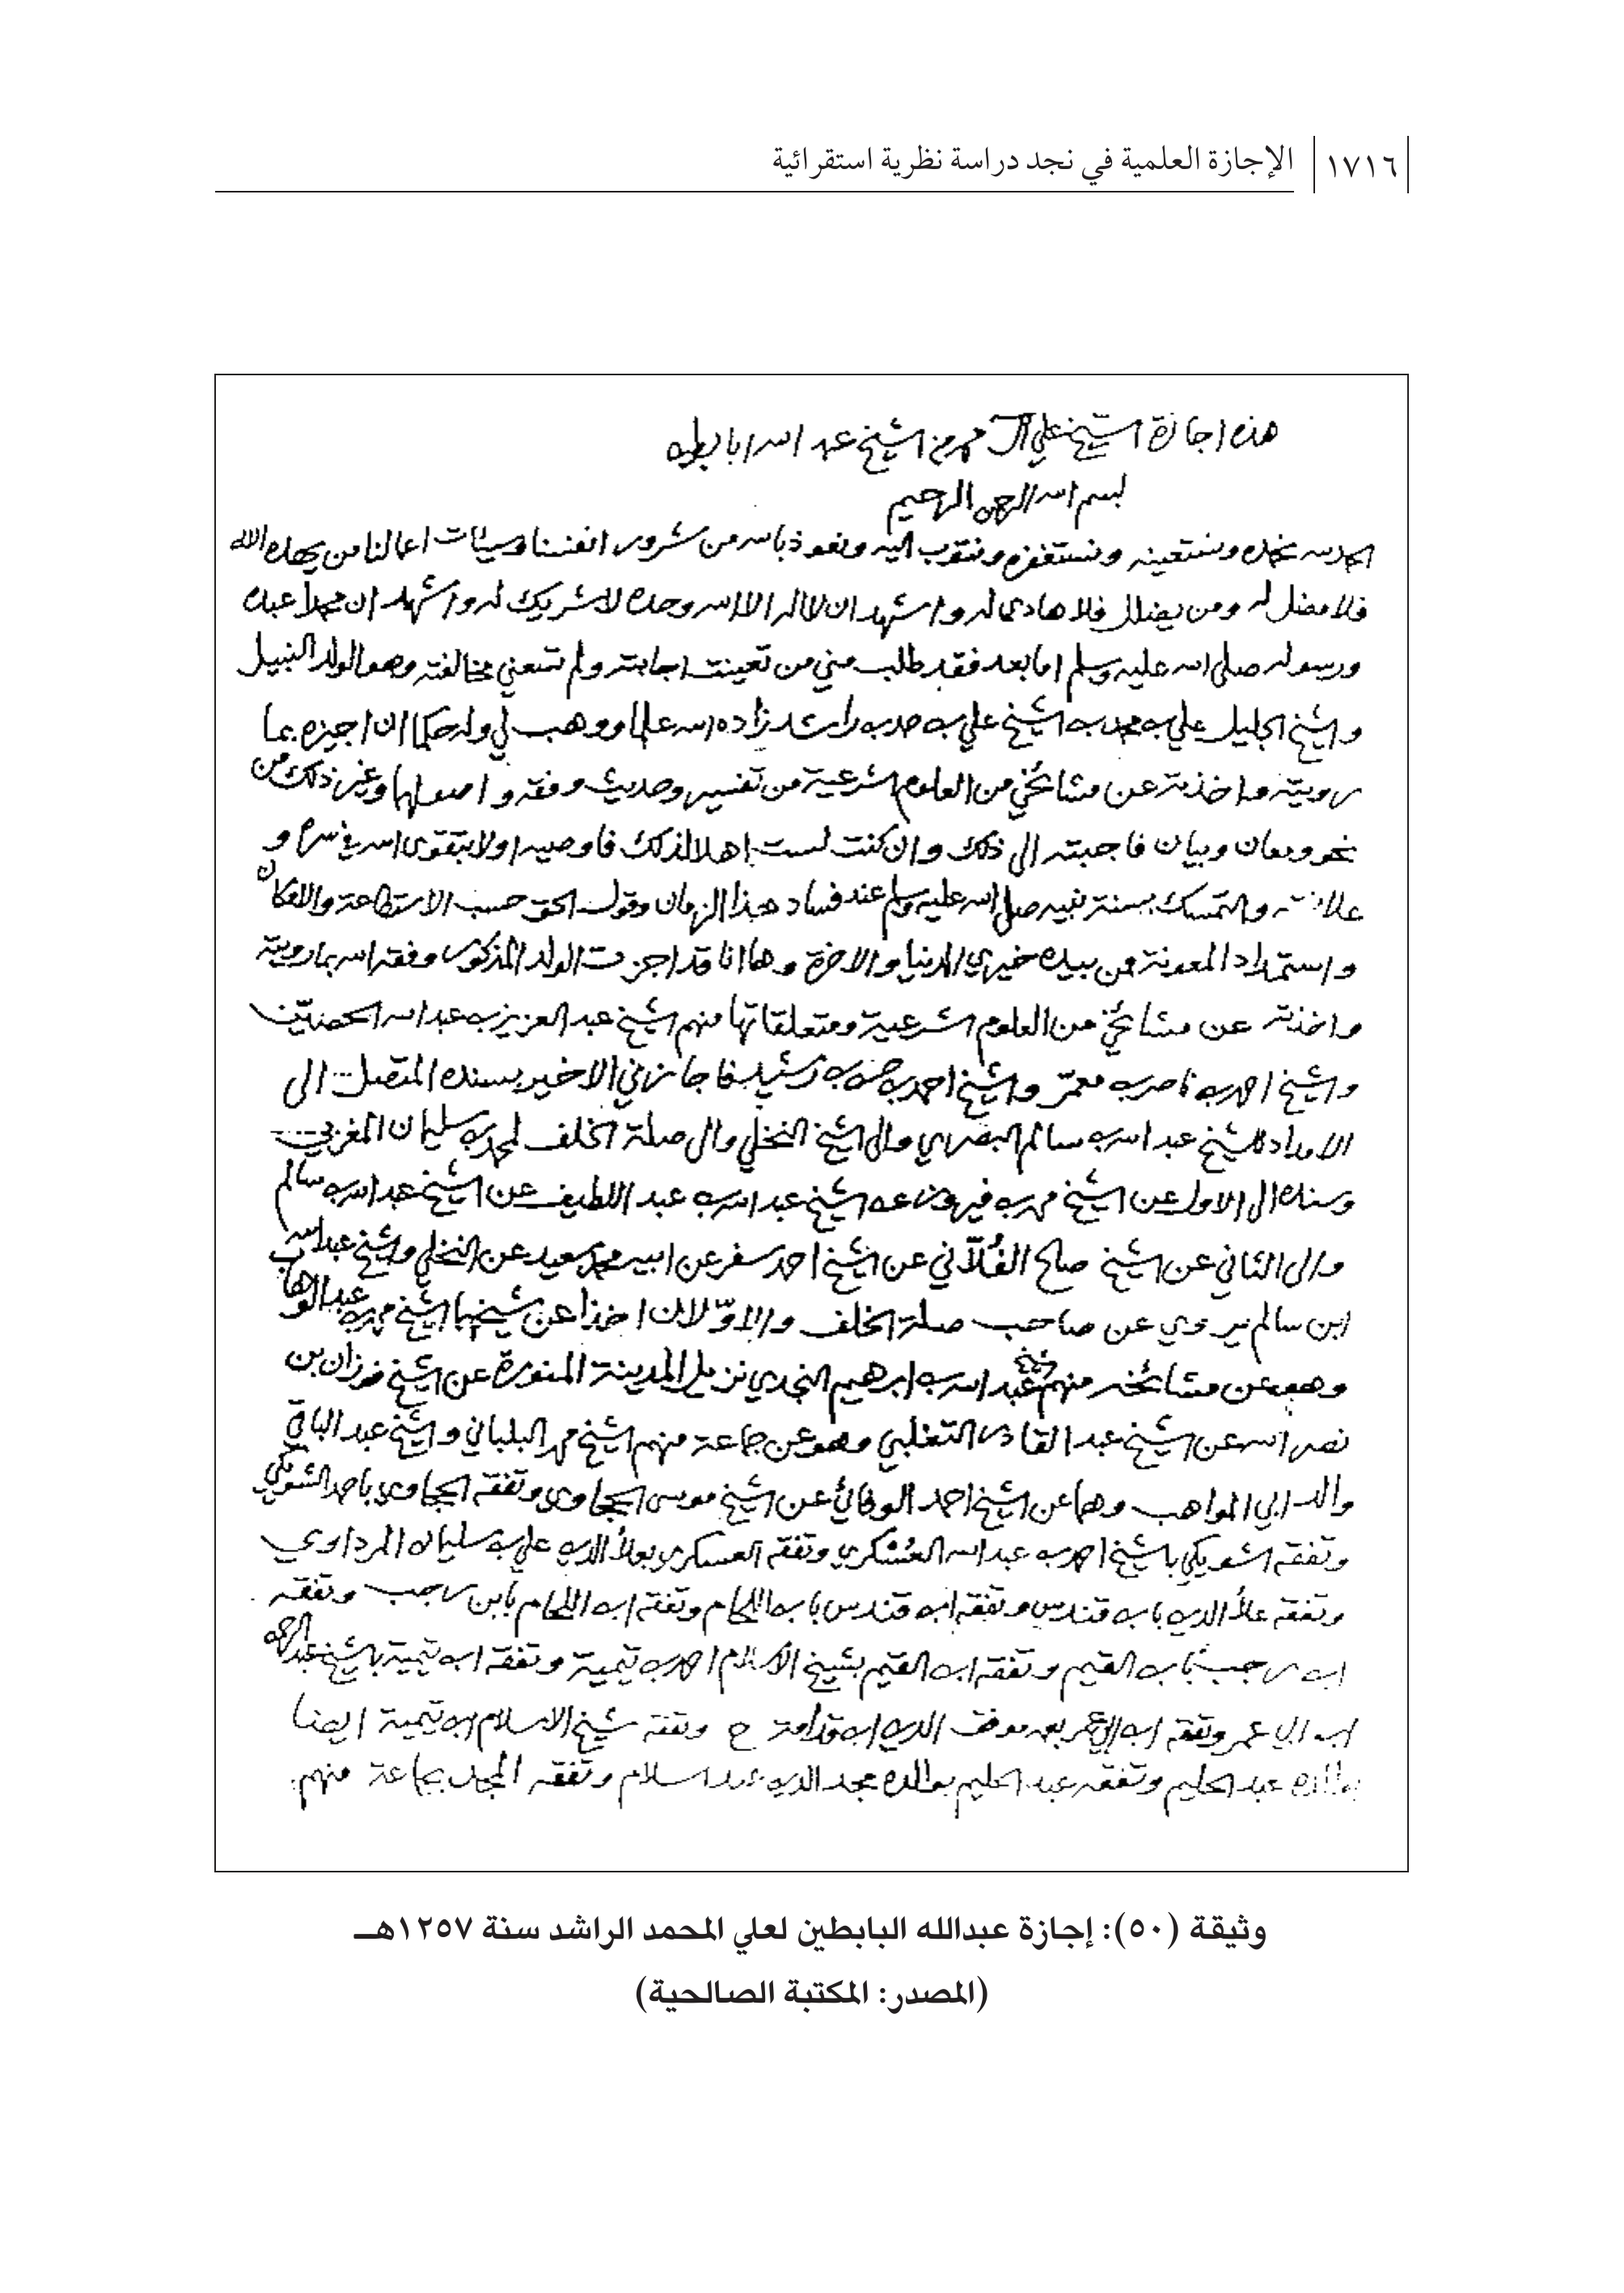 ١٧١٦ الإجازة العلمية في نجد دراسة نظرية استقرائية
هذه اجازة الشيخ علي آل محمد من الشيخ عبد الله ابا بطين
بسم الله الرحمن الرحيم
الحمد لله نحمده ونستعينه ونستغفره ونتوب اليه ونعوذ بالله من شرور انفسنا وسيئات اعمالنا من يهده الله
فلا مضل له ومن يضلل فلا هادي له واشهد ان لا اله الا الله وحده لا شريك له واشهد ان محمدا عبده
ورسوله صلى الله عليه وسلم اما بعد فقد طلب مني من تعينت اجابته ولم تسعني مخالفته وهو الولد النبيل
والشيخ الجليل علي بن محمد بن الشيخ علي بن حمد بن راشد زاده الله علما ووهب لي وله حكما ان اجيزه بما
رويته واخذته عن مشائخي من العلوم الشرعية من تفسير وحديث وفقه واصولها وغير ذلك من
نحو ومعان وبيان فاجبته الى ذلك وان كنت لست اهلا لذلك فاوصيه اولا بتقوى الله في سره و
علانيته والتمسك بسنة نبيه صلى الله عليه وسلم عند فساد هذا الزمان وقول الحق حسب الاستطاعة والامكان
واستمداد المعونة من بيده خيري الدنيا والاخرة وها انا قد اجزت الولد المذكور وفقه الله بما رويته
واخذته عن مشائخي من العلوم الشرعية ومتعلقاتها منهم الشيخ عبد العزيز بن عبد الله الحصين
والشيخ احمد بن ناصر بن معمر والشيخ احمد بن حسن بن رشيد فاجازني الاخير بسنده المتصل الى
الامداد للشيخ عبد الله بن سالم البصري والى الشيخ النخلي والى صلة الخلف لمحمد بن سليمان المغربي
وسنده الى الاول عن الشيخ محمد بن فيروز عن الشيخ عبد الله بن عبد اللطيف عن الشيخ عبد الله بن سالم
والى الثاني عن الشيخ صالح الفُلّاني عن الشيخ احمد سفر عن ابيه محمد سعيد عن النخلي والشيخ عبد الله
ابن سالم يروي عن صاحب صلة الخلف والاوّلان اخذا عن شيخهما الشيخ محمد بن عبد الوهاب
وهو عن مشائخه منهم الشيخ عبد الله بن ابرهيم النجدي نزيل المدينة المنورة عن الشيخ فوزان بن
نصر الله عن الشيخ عبد القادر التغلبي وهو عن جماعة منهم الشيخ محمد البلباني والشيخ عبد الباقي
والد ابي المواهب وهما عن الشيخ احمد الوفائي عن الشيخ موسى الحجاوي وتفقه الحجاوي باحمد الشويكي
وتفقه الشويكي بالشيخ احمد بن عبد الله العُسْكري وتفقه العسكري بعلاء الدين علي بن سليمان المرداوي
وتفقه علاء الدين بابن قندس وتفقه ابن قندس بابن اللحام وتفقه ابن اللحام بابن رجب وتفقه
ابن رجب بابن القيم وتفقه ابن القيم بشيخ الاسلام احمد بن تيمية وتفقه ابن تيمية بالشيخ عبد الرحمن
ابن ابي عمر وتفقه ابن ابي عمر بعمه موفق الدين ابن قدامة ح وتفقه شيخ الاسلام ابن تيمية ايضا
بوالده عبد الحليم وتفقه عبد الحليم بوالده مجد الدين عبد السلام وتفقه المجد بجماعة منهم
وثيقة (٥٠): إجازة عبدالله البابطين لعلي المحمد الراشد سنة ١٢٥٧هـ
(المصدر: المكتبة الصالحية)